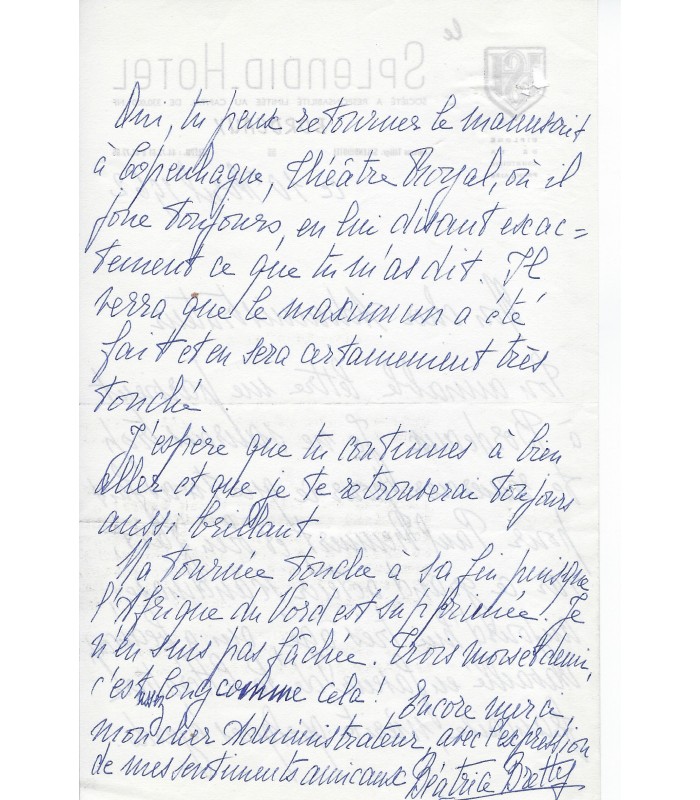 Oui, tu peux retourner le manuscrit
à Copenhague, Théâtre Royal, où il
joue toujours, en lui disant exac=
tement ce que tu m'as dit. Il
verra que le maximum a été
fait et en sera certainement très
touché.
J'espère que tu continues à bien
aller et que je te retrouverai toujours
aussi brillant.
Ma tournée touche à sa fin puisque
l'Afrique du Nord est supprimée! Je
n'en suis pas fâchée. Trois mois et demi,
c'est assez long comme cela! Encore merci,
mon cher Administrateur, avec l'expression
de mes sentiments amicaux Béatrice Bretty
SPLENDID-HOTEL